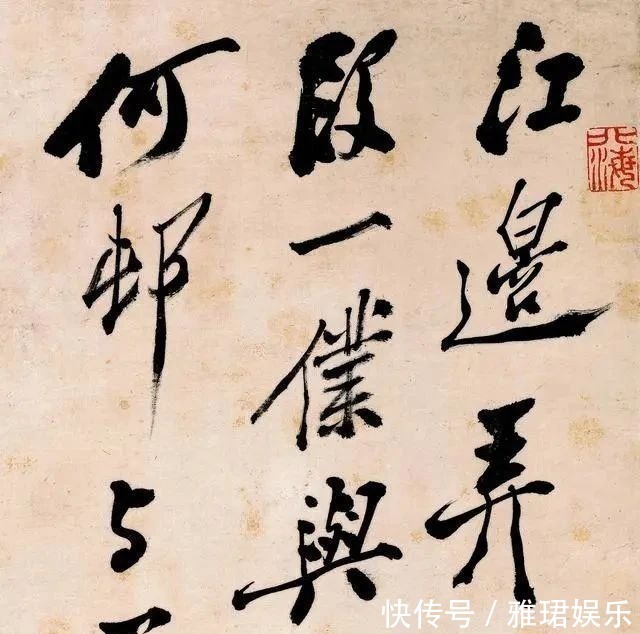 江邊弄
段一僕與
何邨与
快传号 / 雅珺娱乐